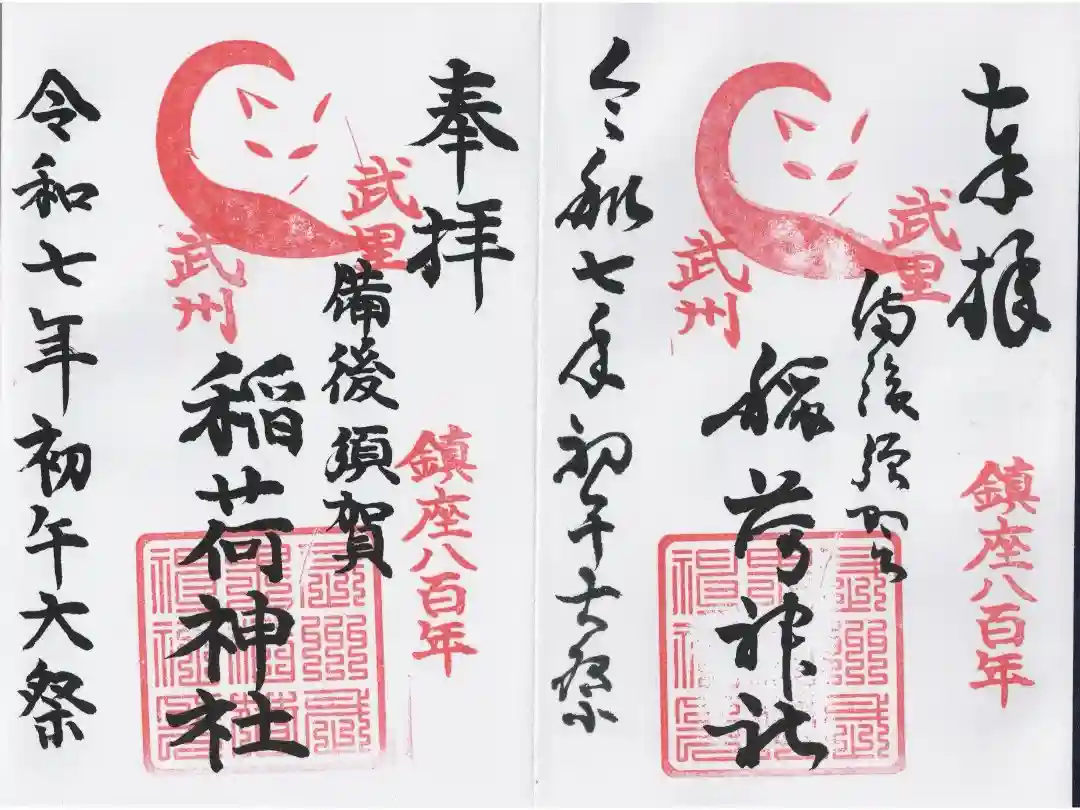 奉拝
武里
備後須賀
鎮座八百年
稲荷神社
武州
令和七年初午大祭
奉拝
武里
備後須賀
鎮座八百年
稲荷神社
武州
令和七年初午大祭